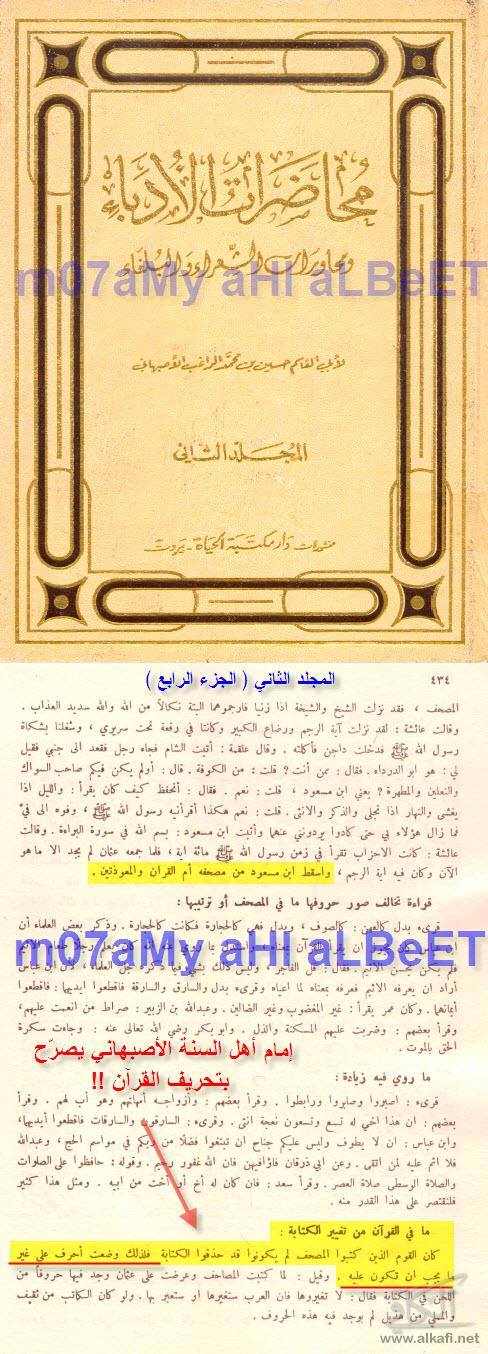 محاضرات الأدباء
ومحاورات الشعراء والبلغاء
m07aMy aHl aLBeET
لأبي القاسم حسين بن محمد الراغب الأصبهاني
المجلد الثاني
منشورات دار مكتبة الحياة - بيروت
المجلد الثاني ( الجزء الرابع )
٤٣٤
المصحف ، فقد نزلت الشيخ والشيخة اذا زنيا فارجموهما البتة نكالاً من الله والله سديد العذاب .
وقالت عائشة : لقد نزلت آية الرجم ورضاع الكبير وكانتا في رقعة تحت سريري ، وشغلنا بشكاة
رسول الله ﷺ فدخلت داجن فأكلته . وقال علقمة : أتيت الشام فجاء رجل فقعد الى جنبي فقيل
لي : هو ابو الدرداء . فقال : ممن أنت ? قلت : من الكوفة . قال : أولم يكن فيكم صاحب السواك
والنعلين والمطهرة ? يعني ابن مسعود ، قلت : نعم . فقال : أتحفظ كيف كان يقرأ : والليل اذا
يغشى والنهار اذا تجلى والذكر والانثى . قلت : نعم هكذا أقرأنيه رسول الله ﷺ ، وفوه الى فيّ
فما زال هؤلاء بي حتى كادوا يردوني عنهما وأثبت ابن مسعود : بسم الله في سورة البراءة . وقالت
عائشة : كانت الاحزاب تقرأ في زمن رسول الله ﷺ مائة آية ، فلما جمعه عثمان لم يجد الا ما هو
الآن وكان فيه آية الرجم ، واسقط ابن مسعود من مصحفه أم القرآن والمعوذتين .
قراءة تخالف صور حروفها ما في المصحف أو ترتيبها :
قرىء بدل كالعهن : كالصوف ، وبدل فهي كالحجارة فكانت كالحجارة . وذكر بعض العلماء أن
m07aMy aHl aLBeET
فلم يكن يحسن الأثيم . فقال : قل الفاجر ، وليس ذلك بشيء فيما ذكره جل العلماء ، لأن ابن عباس
أراد ان يعرفه الأثيم فعرفه بمعناه لما اعياه وقرىء بدل والسارق والسارقة فاقطعوا ايديهما : فاقطعوا
أيمانهما . وكان عمر يقرأ : غير المغضوب وغير الضالين . وعبدالله بن الزبير : صراط من انعمت عليهم ،
وقرأ بعضهم : وضربت عليهم المسكنة والذل . وابو بكر رضي الله تعالى عنه : وجاءت سكرة
الحق بالموت .
إمام أهل السنة الأصبهاني يصرّح
بتحريف القرآن !!
ما روي فيه زيادة :
قرىء : اصبروا وصابروا ورابطوا . وقرأ بعضهم : وأزواجه أمهاتهم وهو أب لهم . وقرأ
بعضهم : ان هذا اخي له تسع وتسعون نعجة انثى . وقرىء : السارقون والسارقات فاقطعوا أيديهما ،
وابن عباس : ان لا يطوف وليس عليكم جناح ان تبتغوا فضلًا من ربكم في مواسم الحج ، وعبدالله
فلا اثم عليه لمن اتقى . وعن ابي فان الله غفور رحيم . وقوله : حافظوا على الصلوات
والصلاة الوسطى صلاة العصر . وقرأ سعد : فان كان له أخ أو أخت من ابيه . ومثل هذا كثير
فلنقتصر على هذا القدر منه .
ما في القرآن من تغيير الكتابة :
كان القوم الذين كتبوا المصحف لم يكونوا قد حذقوا الكتابة فلذلك وضعت أحرف على غير
ما يجب ان تكون عليه . وقيل : لما كتبت المصاحف وعرضت على عثمان وجد فيها حروفاً من
اللحن في الكتابة فقال : لا تغيروها فان العرب ستغيرها او ستعبر بها . ولو كان الكاتب من ثقيف
والمملي من هذيل لم يوجد فيه هذه الحروف .
الكافي
www.alkafi.net